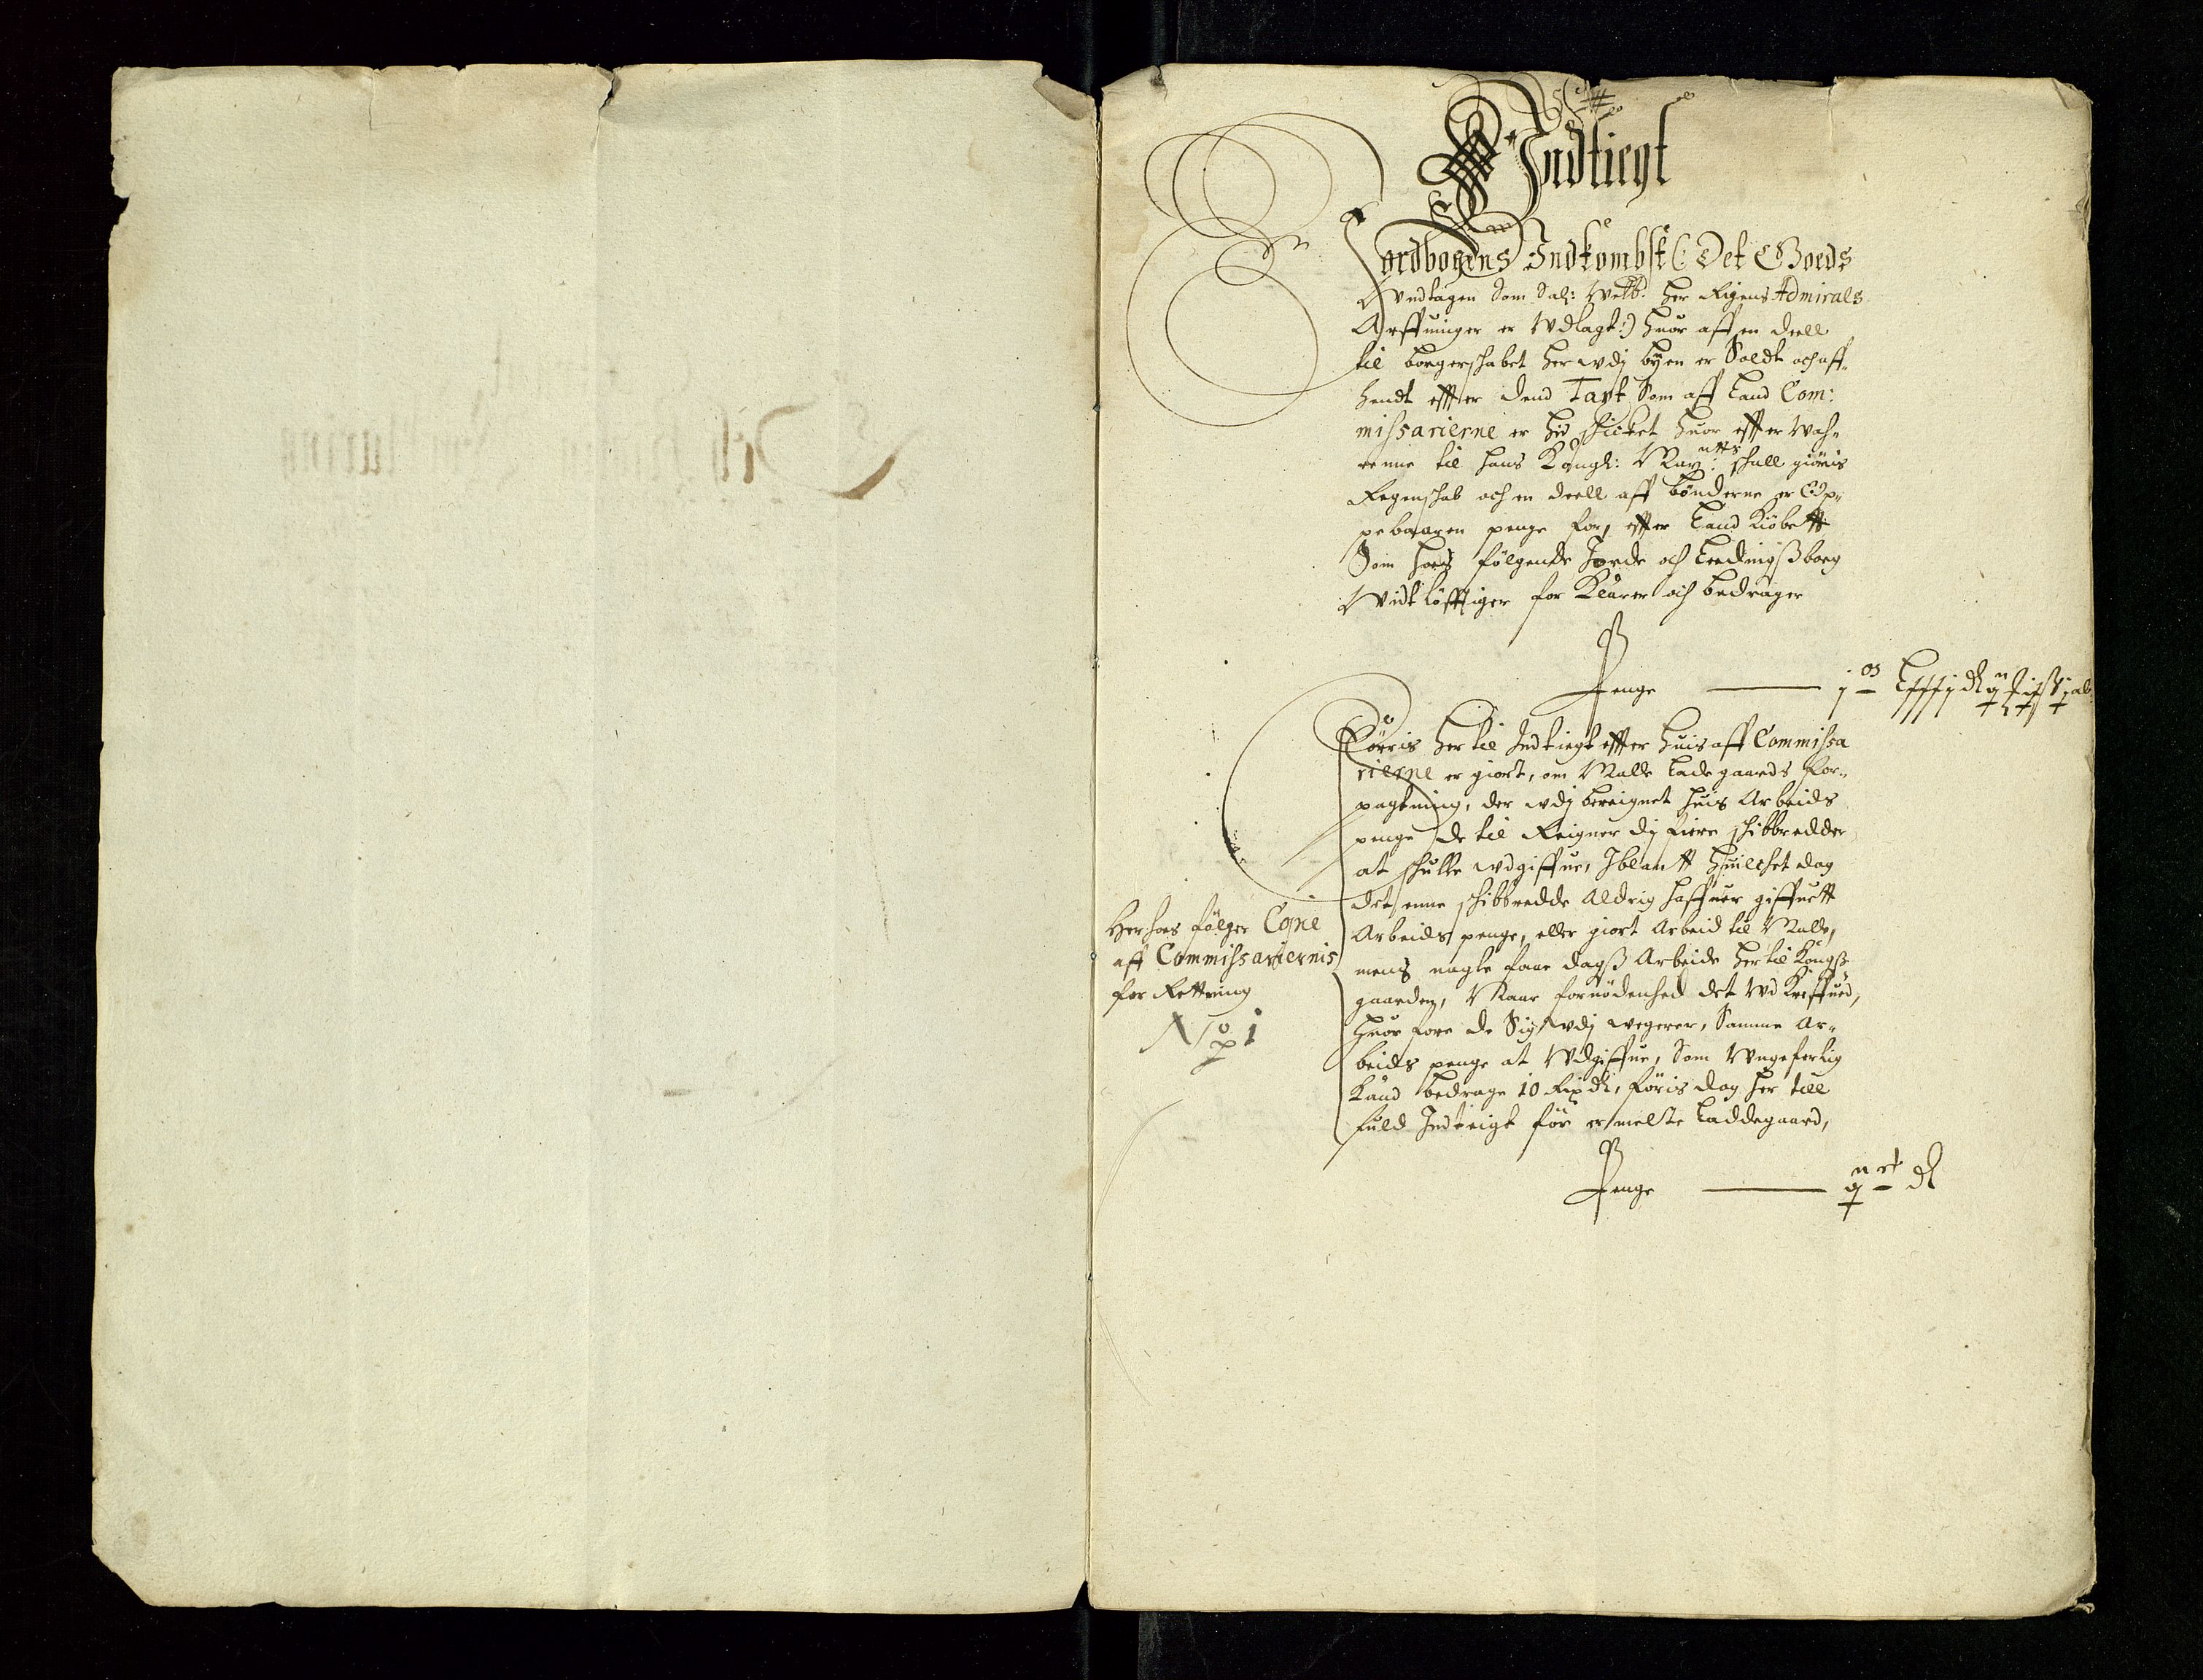 Indtiegt
Jordbogens Indkombst (Det Goeds
Vndtagen Som Sal: Welb: Her Rigens Admirals
Arffuinger er Vdlagt:) huor aff en deell
til borgerschabet her vdj byen er Soldt och aff-
hendt effter dend Taxt Som aff Land Com:
missarierne er hid schicket huor effter Wah-
rerne til hans Kongl: May:tts schall giöris
Regenschab och en deell aff bönderne er Op-
pebaaren penge for, effter Land Kiöbett
Som hoes fölgende Jorde och Leedingsßborg
Vidtlöfftiger for Klarer och bedrager
Penge
Föris her til Indtiegt effter huis aff Commissa
rierne er giort, om Malle Ladegaards for-
pagtning, der vdj bereignet huis Arbeids
penge de til Reigner dj fiere schibbredder
at schulle vdgiffue, Iblantt huilchet dog
det enne schibbredde Aldrig haffuer giffuett
Arbeids penge, eller giort Arbeid til Malle,
mens nogle faae dagß Arbeide her til Kongß
gaarden, Naar fornödenhed det Vd Kreffued,
huor fore de Sig vdj wegerer, Samme Ar-
beids penge at Vdgiffue, Som Vngeferlig
Kand bedrage 10 Rix dr, föris dog her till
fuld Indteigt för ermelte Laddegaard,
Her hoes fölger Copie
aff Commissariernis
for Rettning
No 1
Penge